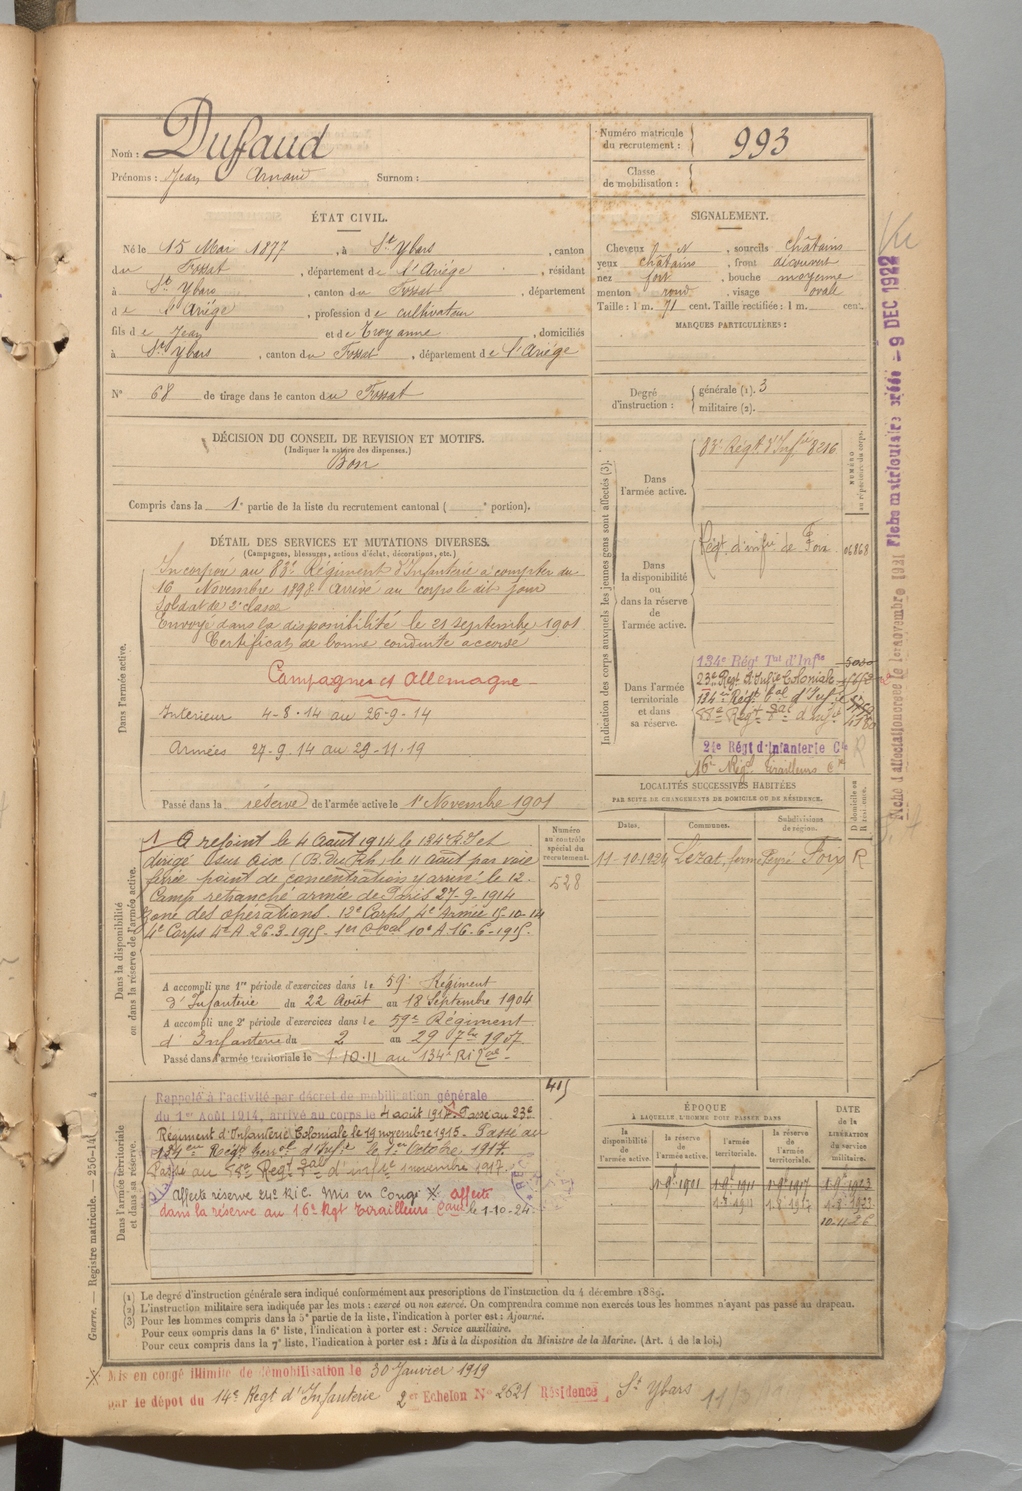 Nom : Duffaud
Prénoms : Jean Arnaud Surnom :
Numéro matricule du recrutement : 993
Classe de mobilisation :
ÉTAT CIVIL.
Né le 15 Mai 1877, à St Ybars, canton
du Fossat, département de l'Ariége, résidant
à St Ybars, canton du Fossat, département
de l'Ariége, profession de cultivateur
fils de Jean et de Troyanne, domiciliés
à St Ybars, canton du Fossat, département de l'Ariége
N° 68 de tirage dans le canton du Fossat
SIGNALEMENT.
Cheveux N, sourcils châtains
yeux châtains, front découvert
nez fort, bouche moyenne
menton rond, visage ovale
Taille : 1 m. 71 cent. Taille rectifiée : 1 m. cent.
MARQUES PARTICULIÈRES :
Degré d'instruction : générale (1). 3
militaire (2).
DÉCISION DU CONSEIL DE REVISION ET MOTIFS.
(Indiquer la nature des dispenses.)
Bon
Compris dans la 1e partie de la liste du recrutement cantonal ( e portion).
DÉTAIL DES SERVICES ET MUTATIONS DIVERSES.
(Campagnes, blessures, actions d'éclat, décorations, etc.)
Dans l'armée active.
Incorporé au 83e Régiment d'Infanterie à compter du
16 Novembre 1898 Arrivé au corps le dit jour
Soldat de 2e classe
Envoyé dans la disponibilité le 21 septembre 1901
Certificat de bonne conduite accordé
Campagnes et Allemagne
Intérieur 4-8-14 au 26-9-14
Armées 27-9-14 au 29-11-19
Passé dans la réserve de l'armée active le 1er Novembre 1901
Dans la disponibilité ou dans la réserve de l'armée active.
A rejoint le 4 Août 1914 le 134e R.I et
dirigé sur Aix (B. du Rh) le 11 Août par voie
ferrée point de concentration y arrivé le 12-
Camp retranché armée de Paris 27-9-1914
Zone des opérations. 12e Corps, 4e Armée 15-10-14
4e Corps 4e A. 26-3-1915- 1er C. Cal 10e A. 16-6-1915.
A accompli une 1re période d'exercices dans le 59e Régiment
d'Infanterie du 22 Août au 18 Septembre 1904
A accompli une 2e période d'exercices dans le 59e Régiment
d'Infanterie du 2 au 29 7bre 1907
Passé dans l'armée territoriale le 1-10-11 au 134e R.I Ter.
Numéro au contrôle spécial du recrutement.
528
415
Dans l'armée territoriale et dans sa réserve.
Rappelé à l'activité par décret de mobilisation générale
du 1er Août 1914, arrivé au corps le 4 août 191 Passé au 23e
Régiment d'Infanterie Coloniale le 19 novembre 1915- Passé au
134eme Régt terral d'Infie le 1er Octobre 1917.
Passé au Régt d'infie novembre 1917.
Affecté réserve 24e RIC. Mis en Congé X. affecté
dans la réserve au 16e Rgt Tirailleurs le 1-10-24.
Indication des corps auxquels les jeunes gens sont affectés (3).
NUMÉRO au répertoire du corps.
Dans l'armée active.
83e Régt. d'Infie 8216
Dans la disponibilité ou dans la réserve de l'armée active.
Régt d'infie de Foix 06868
Dans l'armée territoriale et dans sa réserve.
134e Régt Tal d'Infie
23e Régt d'Infie Coloniale
134e Régt Tal d'Inf
Régt d'Inf
21e Régt d'Infanterie Cle R
16e Régt Tirailleurs
LOCALITÉS SUCCESSIVES HABITÉES
PAR SUITE DE CHANGEMENTS DE DOMICILE OU DE RÉSIDENCE.
Dates. Communes. Subdivisions de région. D domicile ou R résidence.
11-10-1924 Lezat, ferme Peyré Foix R
ÉPOQUE
À LAQUELLE L'HOMME DOIT PASSER DANS
la disponibilité de l'armée active. la réserve de l'armée active. l'armée territoriale. la réserve de l'armée territoriale. DATE de la LIBÉRATION du service militaire.
1-9-1901 1-9-1911 1-9-1917 1-9-1923
1-8-1911 1-8-1917 1-8-1923
10-11-26
(1) Le degré d'instruction générale sera indiqué conformément aux prescriptions de l'instruction du 4 décembre 1889.
(2) L'instruction militaire sera indiquée par les mots : exercé ou non exercé. On comprendra comme non exercés tous les hommes n'ayant pas passé au drapeau.
(3) Pour les hommes compris dans la 5e partie de la liste, l'indication à porter est : Ajourné.
Pour ceux compris dans la 6e liste, l'indication à porter est : Service auxiliaire.
Pour ceux compris dans la 7e liste, l'indication à porter est : Mis à la disposition du Ministre de la Marine. (Art. 4 de la loi.)
X Mis en congé illimité de démobilisation le 30 Janvier 1919
par le dépôt du 14e Régt d'Infanterie 2e Echelon N° 2621 Résidence St Ybars
Guerre. — Registre matricule. — 256-14
Fiche d'affectation créée le 1er novembre 1921 Fiche matriculaire créée - 9 DEC 1922